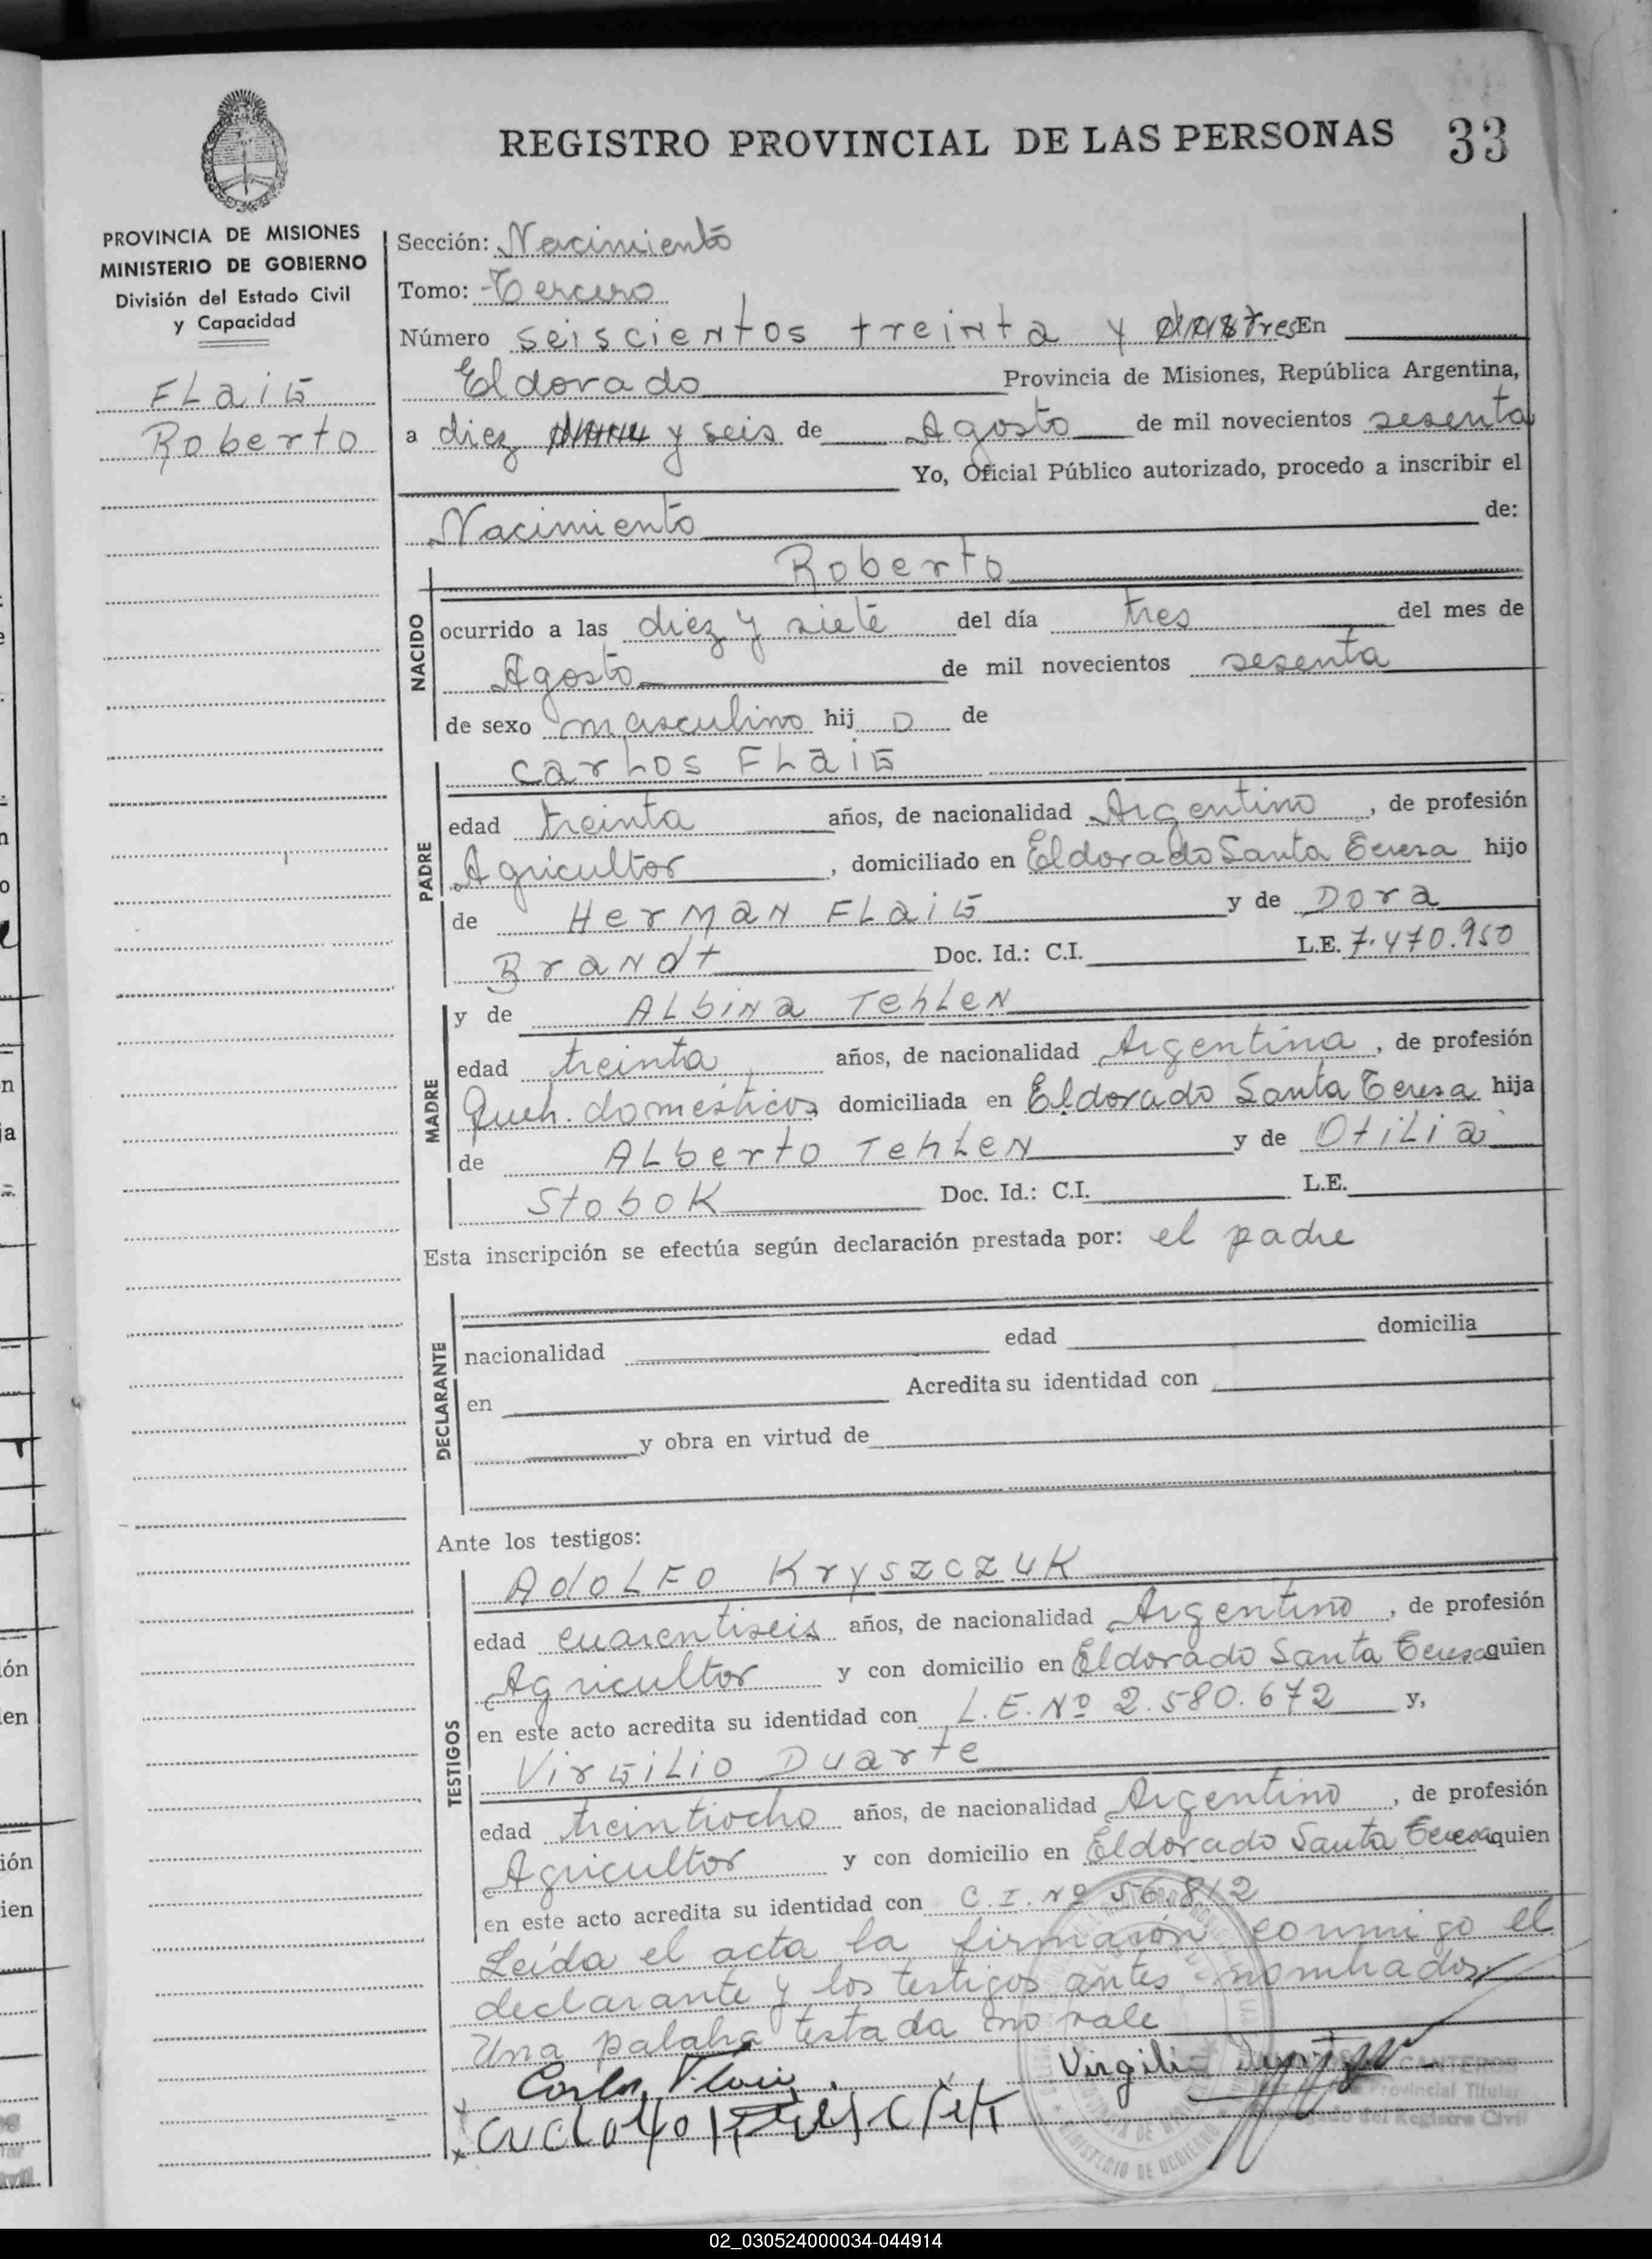 REGISTRO PROVINCIAL DE LAS PERSONAS 33
PROVINCIA DE MISIONES
MINISTERIO DE GOBIERNO
División del Estado Civil
y Capacidad
FLaiG
Roberto
Sección: Nacimiento
Tomo: Tercero
Número seiscientos treinta y tres En
Eldorado Provincia de Misiones, República Argentina,
a diez y seis de Agosto de mil novecientos sesenta
Yo, Oficial Público autorizado, procedo a inscribir el
Nacimiento de:
NACIDO
Roberto
ocurrido a las diez y siete del día tres del mes de
Agosto de mil novecientos sesenta
de sexo masculino hij o de
PADRE
CarLos FLaiG
edad treinta años, de nacionalidad Argentino, de profesión
Agricultor, domiciliado en Eldorado Santa Teresa hijo
de HerMaN FLaiG y de Dora
BraNdt Doc. Id.: C.I. L.E. 7.470.950
MADRE
y de ALbiNa TehLeN
edad treinta años, de nacionalidad Argentina, de profesión
Queh. domésticos domiciliada en Eldorado Santa Teresa hija
de ALberto TehLeN y de OtiLia
StoboK Doc. Id.: C.I. L.E.
Esta inscripción se efectúa según declaración prestada por: el padre
DECLARANTE
nacionalidad edad domicilia
en Acredita su identidad con
y obra en virtud de
Ante los testigos:
TESTIGOS
AdoLFo KryszczuK
edad cuarentiseis años, de nacionalidad Argentino, de profesión
Agricultor y con domicilio en Eldorado Santa Teresa quien
en este acto acredita su identidad con L.E. Nº 2.580.672 y,
VirGiLio Duarte
edad treintiocho años, de nacionalidad Argentino, de profesión
Agricultor y con domicilio en Eldorado Santa Teresa quien
en este acto acredita su identidad con C.I. Nº 56.812
Leída el acta la firmaron conmigo el
declarante y los testigos antes nombrados
Una palabra testada no vale
Carlos Flaig Virgilio
CANTEROS
Provincial Titular
del Registro Civil
MINISTERIO DE GOBIERNO
02_030524000034-044914